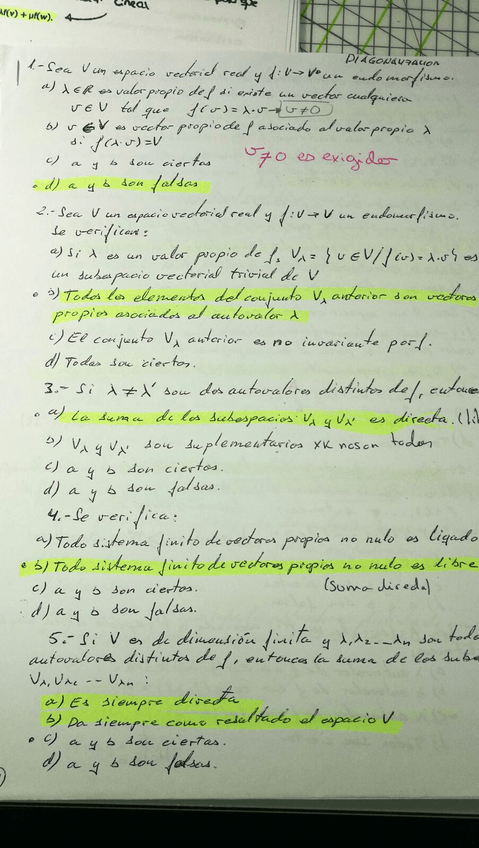 Lineal
f(v) + μf(w).
DIAGONALIZACION
1.- Sea V un espacio vectorial real y f: V → V un endomorfismo.
a) λ∈R es valor propio de f si existe un vector cualquiera
v∈V tal que f(v) = λ·v → v≠0
b) v∈V es vector propio de f asociado al valor propio λ
si f(λ·v)=V
v≠0 es exigido
c) a y b son ciertas
d) a y b son falsas
2.- Sea V un espacio vectorial real y f: V → V un endomorfismo.
Se verifican:
a) Si λ es un valor propio de f, Vλ = {v∈V/f(v)=λ·v} es
un subespacio vectorial trivial de V
b) Todos los elementos del conjunto Vλ anterior son vectores
propios asociados al autovalor λ
c) El conjunto Vλ anterior es no invariante por f.
d) Todas son ciertas.
3.- Si λ ≠ λ' son dos autovalores distintos de f, entonce
a) La suma de los subespacios Vλ y Vλ' es directa. (li
b) Vλ y Vλ' son suplementarios xk no son todos
c) a y b son ciertas.
d) a y b son falsas.
4.- Se verifica:
a) Todo sistema finito de vectores propios no nulo es ligado
b) Todo sistema finito de vectores propios no nulo es libre
c) a y b son ciertas. (Suma directa)
d) a y b son falsas.
5.- Si V es de dimensión finita y λ, λ2 ... λn son todo
autovalores distintos de f, entonces la suma de los sube
Vλ, Vλ2 ... Vλn :
a) Es siempre directa
b) Da siempre como resultado el espacio V
c) a y b son ciertas.
d) a y b son falsas.